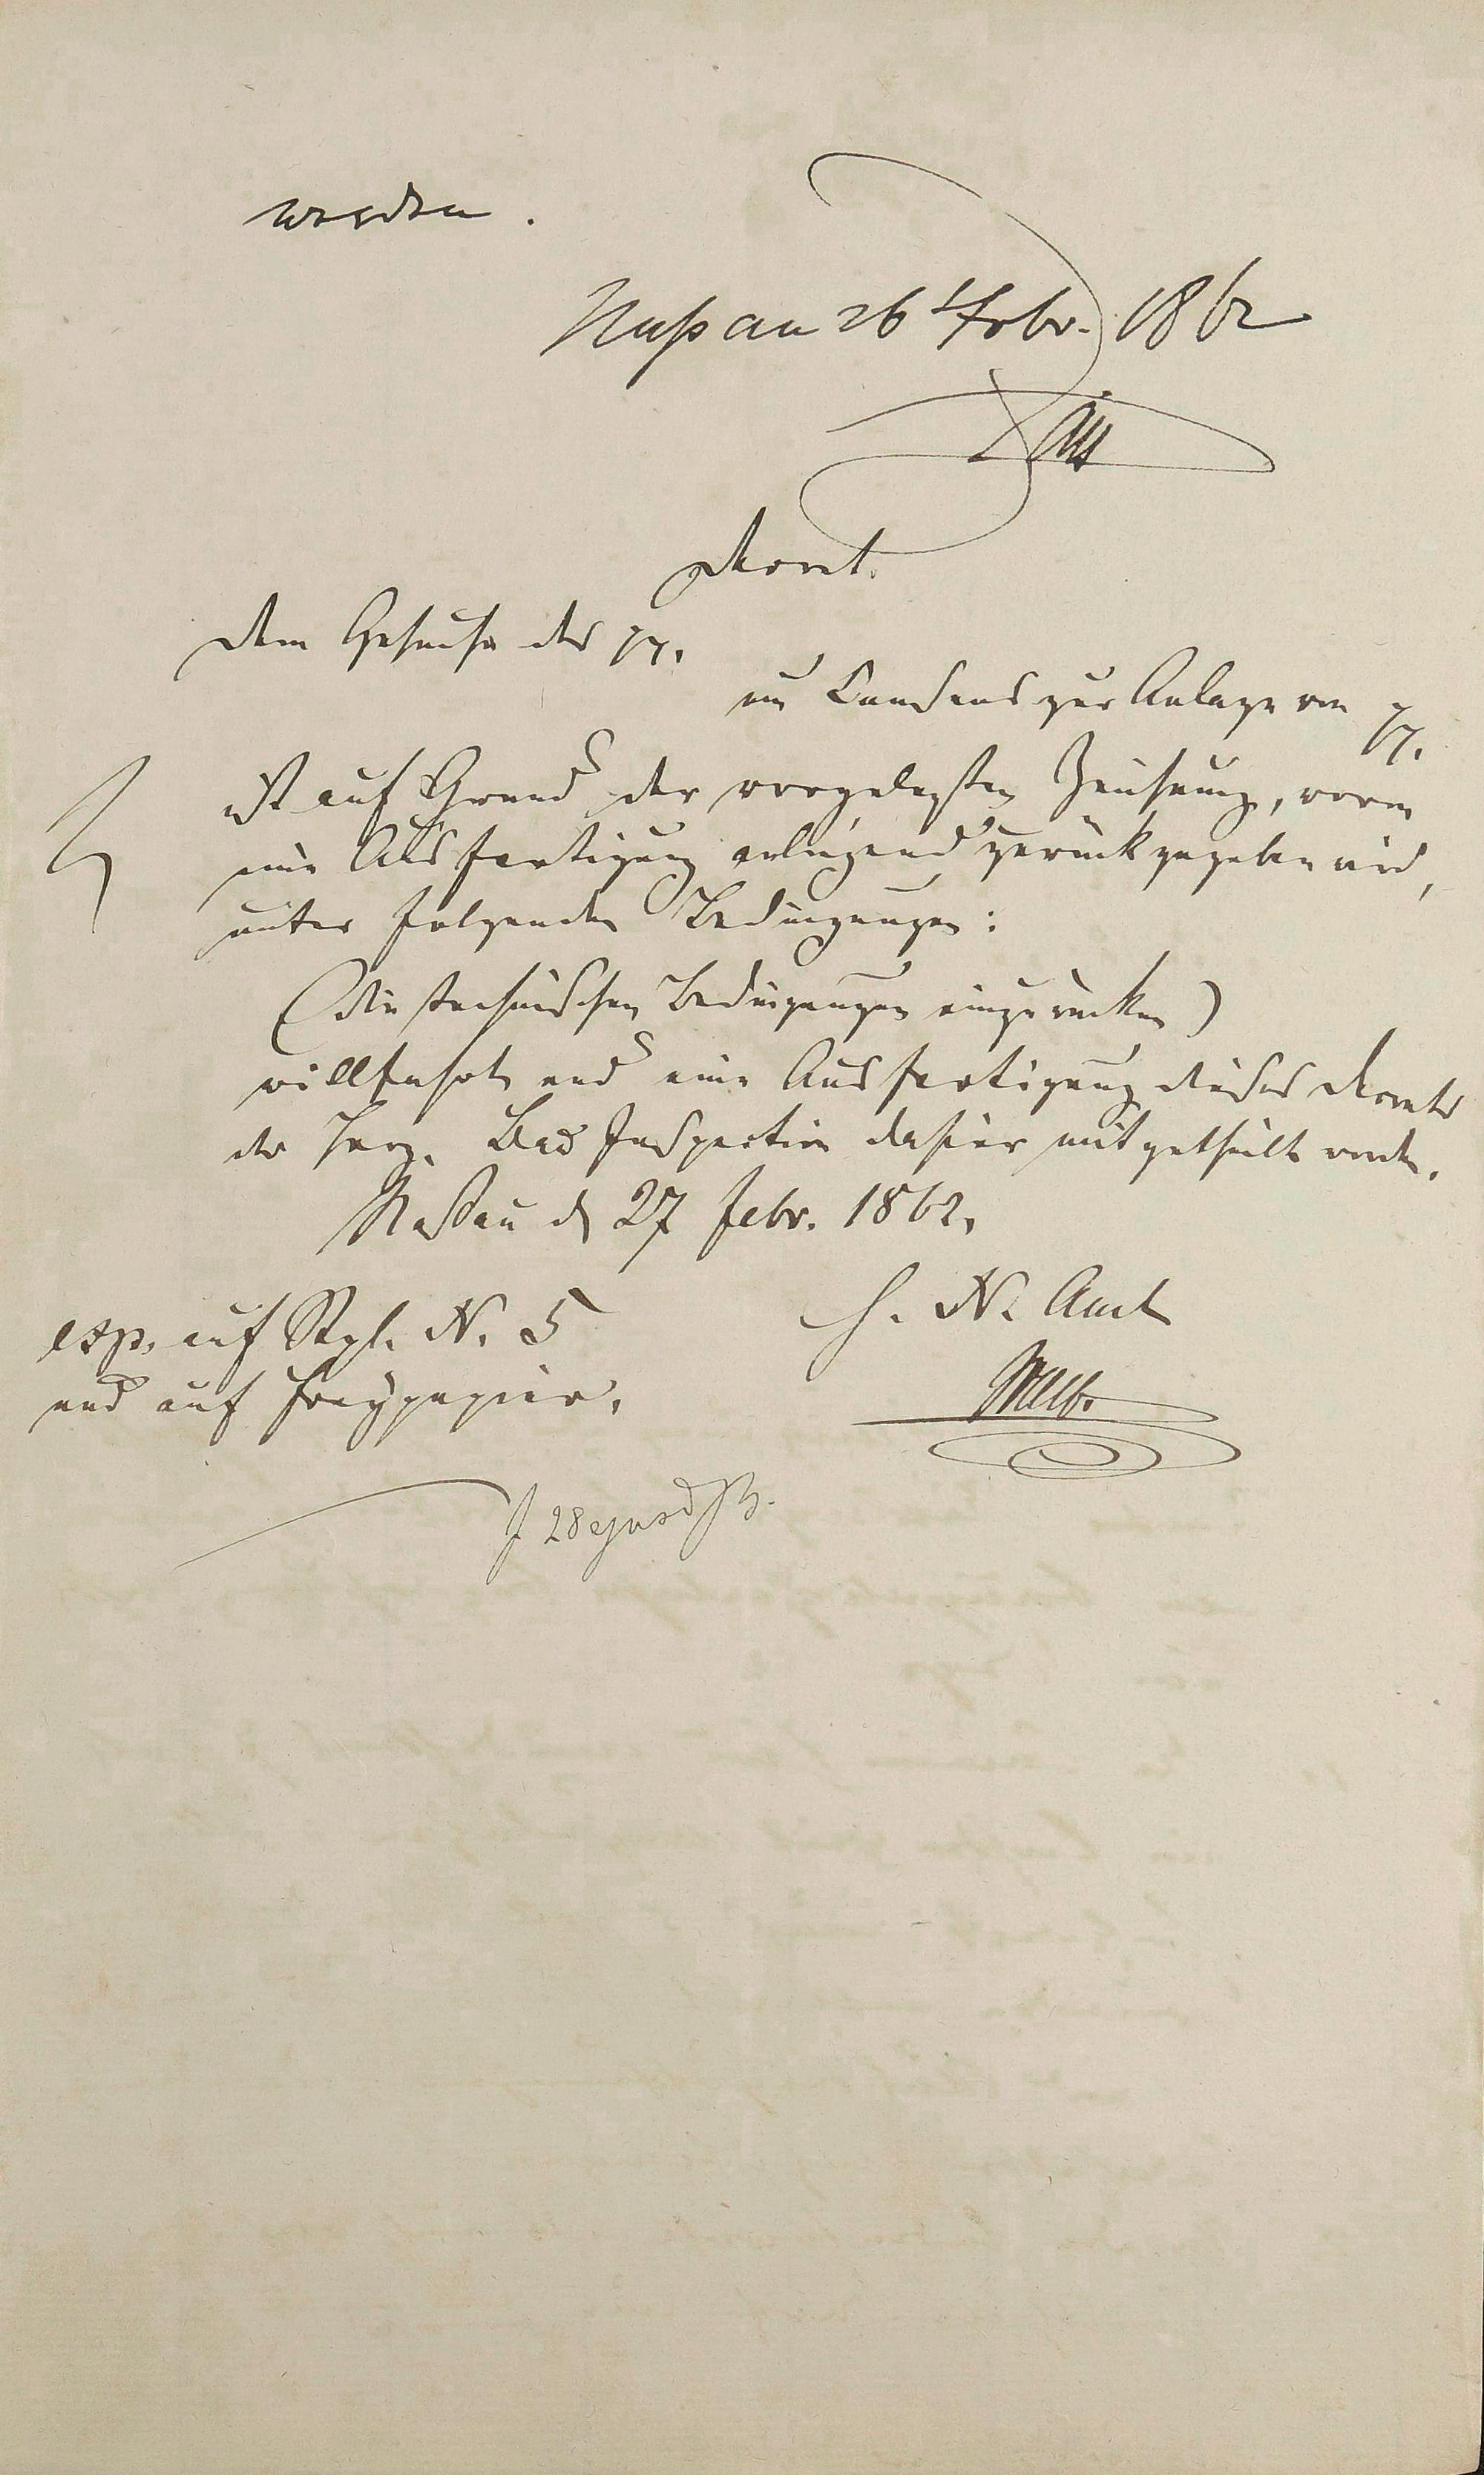 werden.
Nassau 26 Febr. 1862
Decret.
Dem Gesuche des pp.
um Consens zur Anlage von pp.
ist auf Grund der vorgelegten Zeichnung, wovon
eine Ausfertigung anliegend zurückgegeben wird,
unter folgenden Bedingungen:
(die technischen Bedingungen einzurücken)
willfahrt und eine Ausfertigung dieses Decrets
der Herz. Bad Inspection dahier mitgetheilt worden.
Naßau d 27 Febr. 1862.
H. N. Amt
exp. auf Stpl. N. 5
und auf Freypapier.
28 ejusd